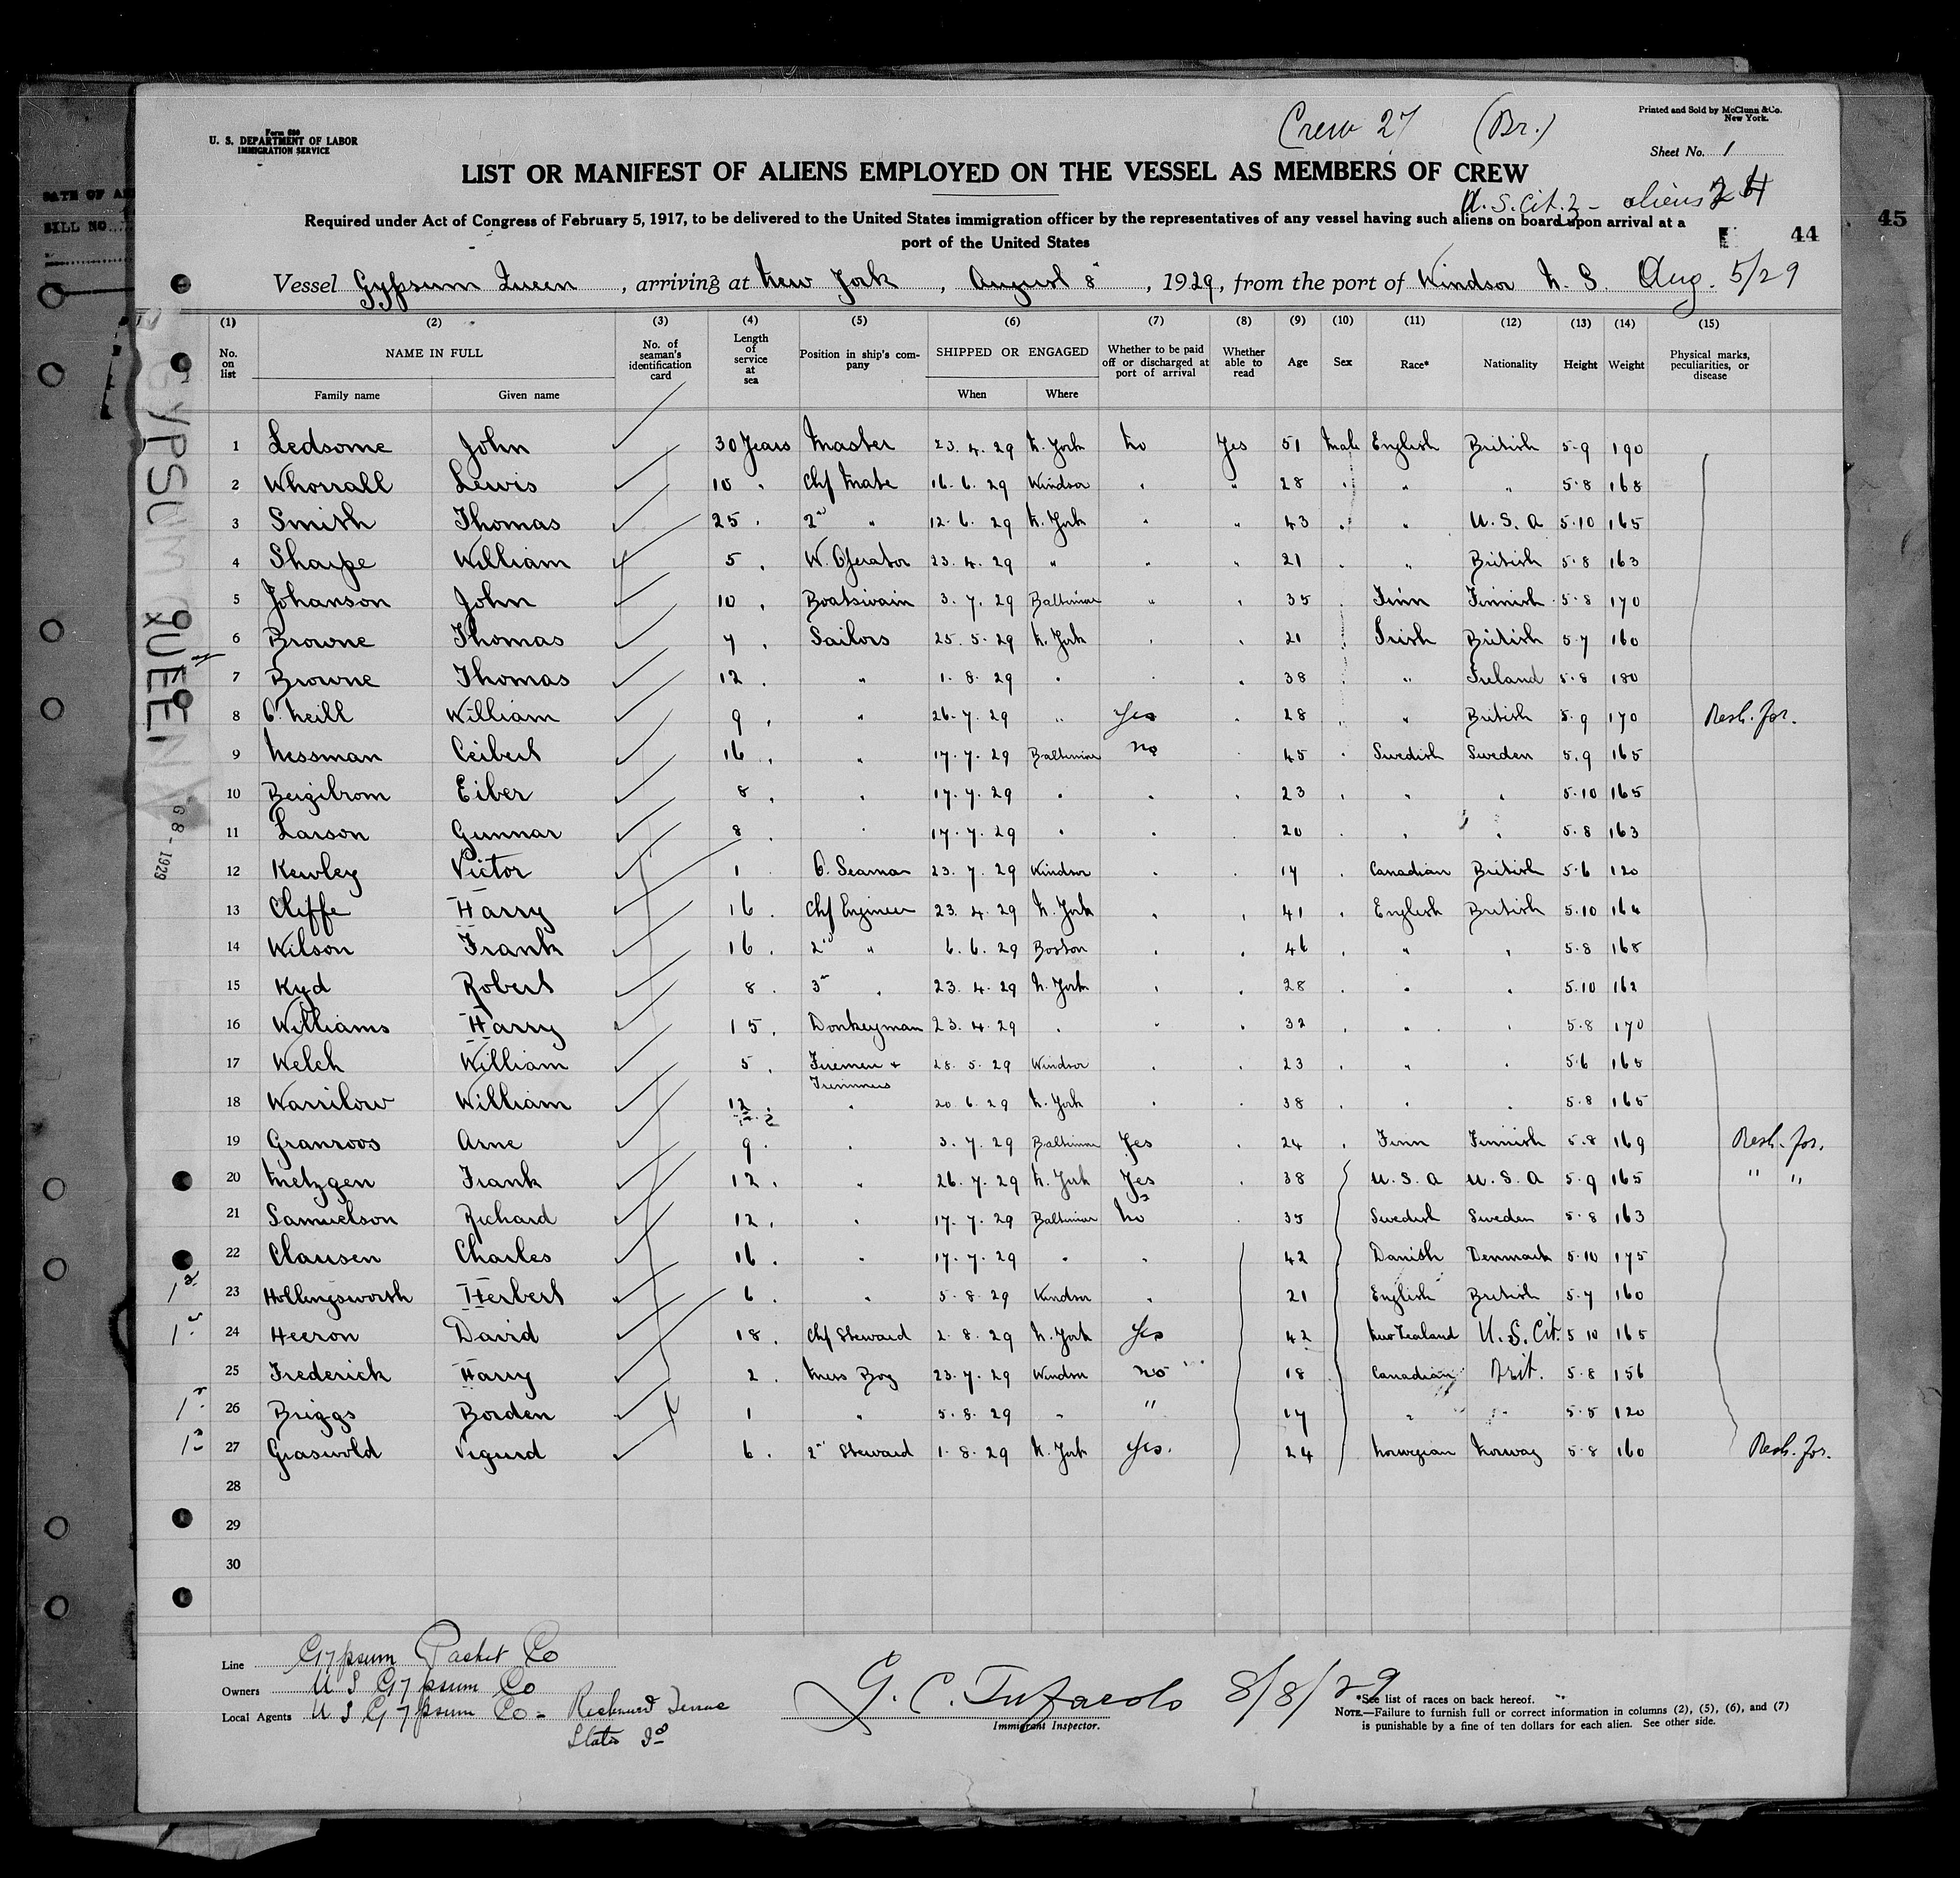 Form 680
U. S. DEPARTMENT OF LABOR
IMMIGRATION SERVICE
Crew 27 (Br.)
Printed and Sold by McClunn & Co.
New York.
Sheet No. 1
LIST OR MANIFEST OF ALIENS EMPLOYED ON THE VESSEL AS MEMBERS OF CREW
U.S. Cit. 3 - aliens 24
Required under Act of Congress of February 5, 1917, to be delivered to the United States immigration officer by the representatives of any vessel having such aliens on board upon arrival at a
port of the United States
44
45
Vessel Gypsum Queen, arriving at New York, August 8, 1929, from the port of Windsor N. S. Aug. 5/29
(1) (2) (3) (4) (5) (6) (7) (8) (9) (10) (11) (12) (13) (14) (15)
No. on list NAME IN FULL Family name Given name No. of seaman's identification card Length of service at sea Position in ship's company SHIPPED OR ENGAGED When Where Whether to be paid off or discharged at port of arrival Whether able to read Age Sex Race* Nationality Height Weight Physical marks, peculiarities, or disease
1 Ledsome John 30 Years Master 23. 4. 29 N. York No Yes 51 Male English British 5-9 190
2 Whorrall Lewis 10 " Chf Mate 16. 6. 29 Windsor " " 28 " " " 5-8 168
3 Smith Thomas 25 " 2nd " 12. 6. 29 N. York " " 43 " " U. S. A 5-10 165
4 Sharpe William 5 " W. Operator 23. 4. 29 " " " 21 " " British 5-8 163
5 Johanson John 10 " Boatswain 3. 7. 29 Baltimore " " 35 " Finn Finnish 5-8 170
6 Browne Thomas 7 " Sailors 25. 5. 29 N. York " " 21 " Irish British 5-7 160
7 Browne Thomas 12 " " 1. 8. 29 " " " 38 " " Ireland 5-8 180
8 O'Neill William 9 " " 26. 7. 29 " Yes " 28 " " British 5-9 170 Resh. for.
9 Nessman Ceibert 16 " " 17. 7. 29 Baltimore No " 45 " Swedish Sweden 5-9 165
10 Bergibrom Eiber 8 " " 17. 7. 29 " " " 23 " " " 5-10 165
11 Larson Gunnar 8 " " 17. 7. 29 " " " 20 " " " 5-8 163
12 Kewley Victor 1 O. Seaman 23. 7. 29 Windsor " " 17 " Canadian British 5-6 120
13 Cliffe Harry 16 " Chf Engineer 23. 4. 29 N. York " " 41 " English British 5-10 164
14 Wilson Frank 16 " 2nd " 6. 6. 29 Boston " " 46 " " " 5-8 168
15 Kyd Robert 8 " 3rd " 23. 4. 29 N. York " " 28 " " " 5-10 162
16 Williams Harry 15 " Donkeyman 23. 4. 29 " " " 32 " " " 5-8 170
17 Welch William 5 " Firemen + Trimmers 28. 5. 29 Windsor " " 23 " " " 5-6 165
18 Warrilow William 12 " " 20. 6. 29 N. York " " 38 " " " 5-8 165
19 Granroos Arne 9 " " 3. 7. 29 Baltimore Yes " 24 " Finn Finnish 5-8 169 Resh. for.
20 Metzgen Frank 12 " " 26. 7. 29 N. York Yes " 38 U. S. A U. S. A 5-9 165 " "
21 Samuelson Richard 12 " " 17. 7. 29 Baltimore No " 35 Swedish Sweden 5-8 163
22 Clausen Charles 16 " " 17. 7. 29 " " 42 Danish Denmark 5-10 175
23 Hollingsworth Herbert 6 " " 5. 8. 29 Windsor " 21 English British 5-7 160
24 Heeron David 18 " Chf Steward 2. 8. 29 N. York Yes 42 New Zealand U. S. Cit. 5 10 165
25 Frederick Harry 2 " Mess Boy 23. 7. 29 Windsor no 18 Canadian Brit. 5-8 156
26 Briggs Borden 1 " 5. 8. 29 " " 17 " " 5-5 120
27 Graswold Sigurd 6 " 2nd Steward 1. 8. 29 N. York Yes. 24 Norwegian Norway 5-8 160 Resh. for.
28
29
30
GYPSUM QUEEN
G 8 - 1929
Line Gypsum Packet Co
Owners U S Gypsum Co
Local Agents U S Gypsum Co - Richmond Terrace
Staten Isd
8/8/29
Immigrant Inspector.
*See list of races on back hereof.
NOTE.—Failure to furnish full or correct information in columns (2), (5), (6), and (7)
is punishable by a fine of ten dollars for each alien. See other side.